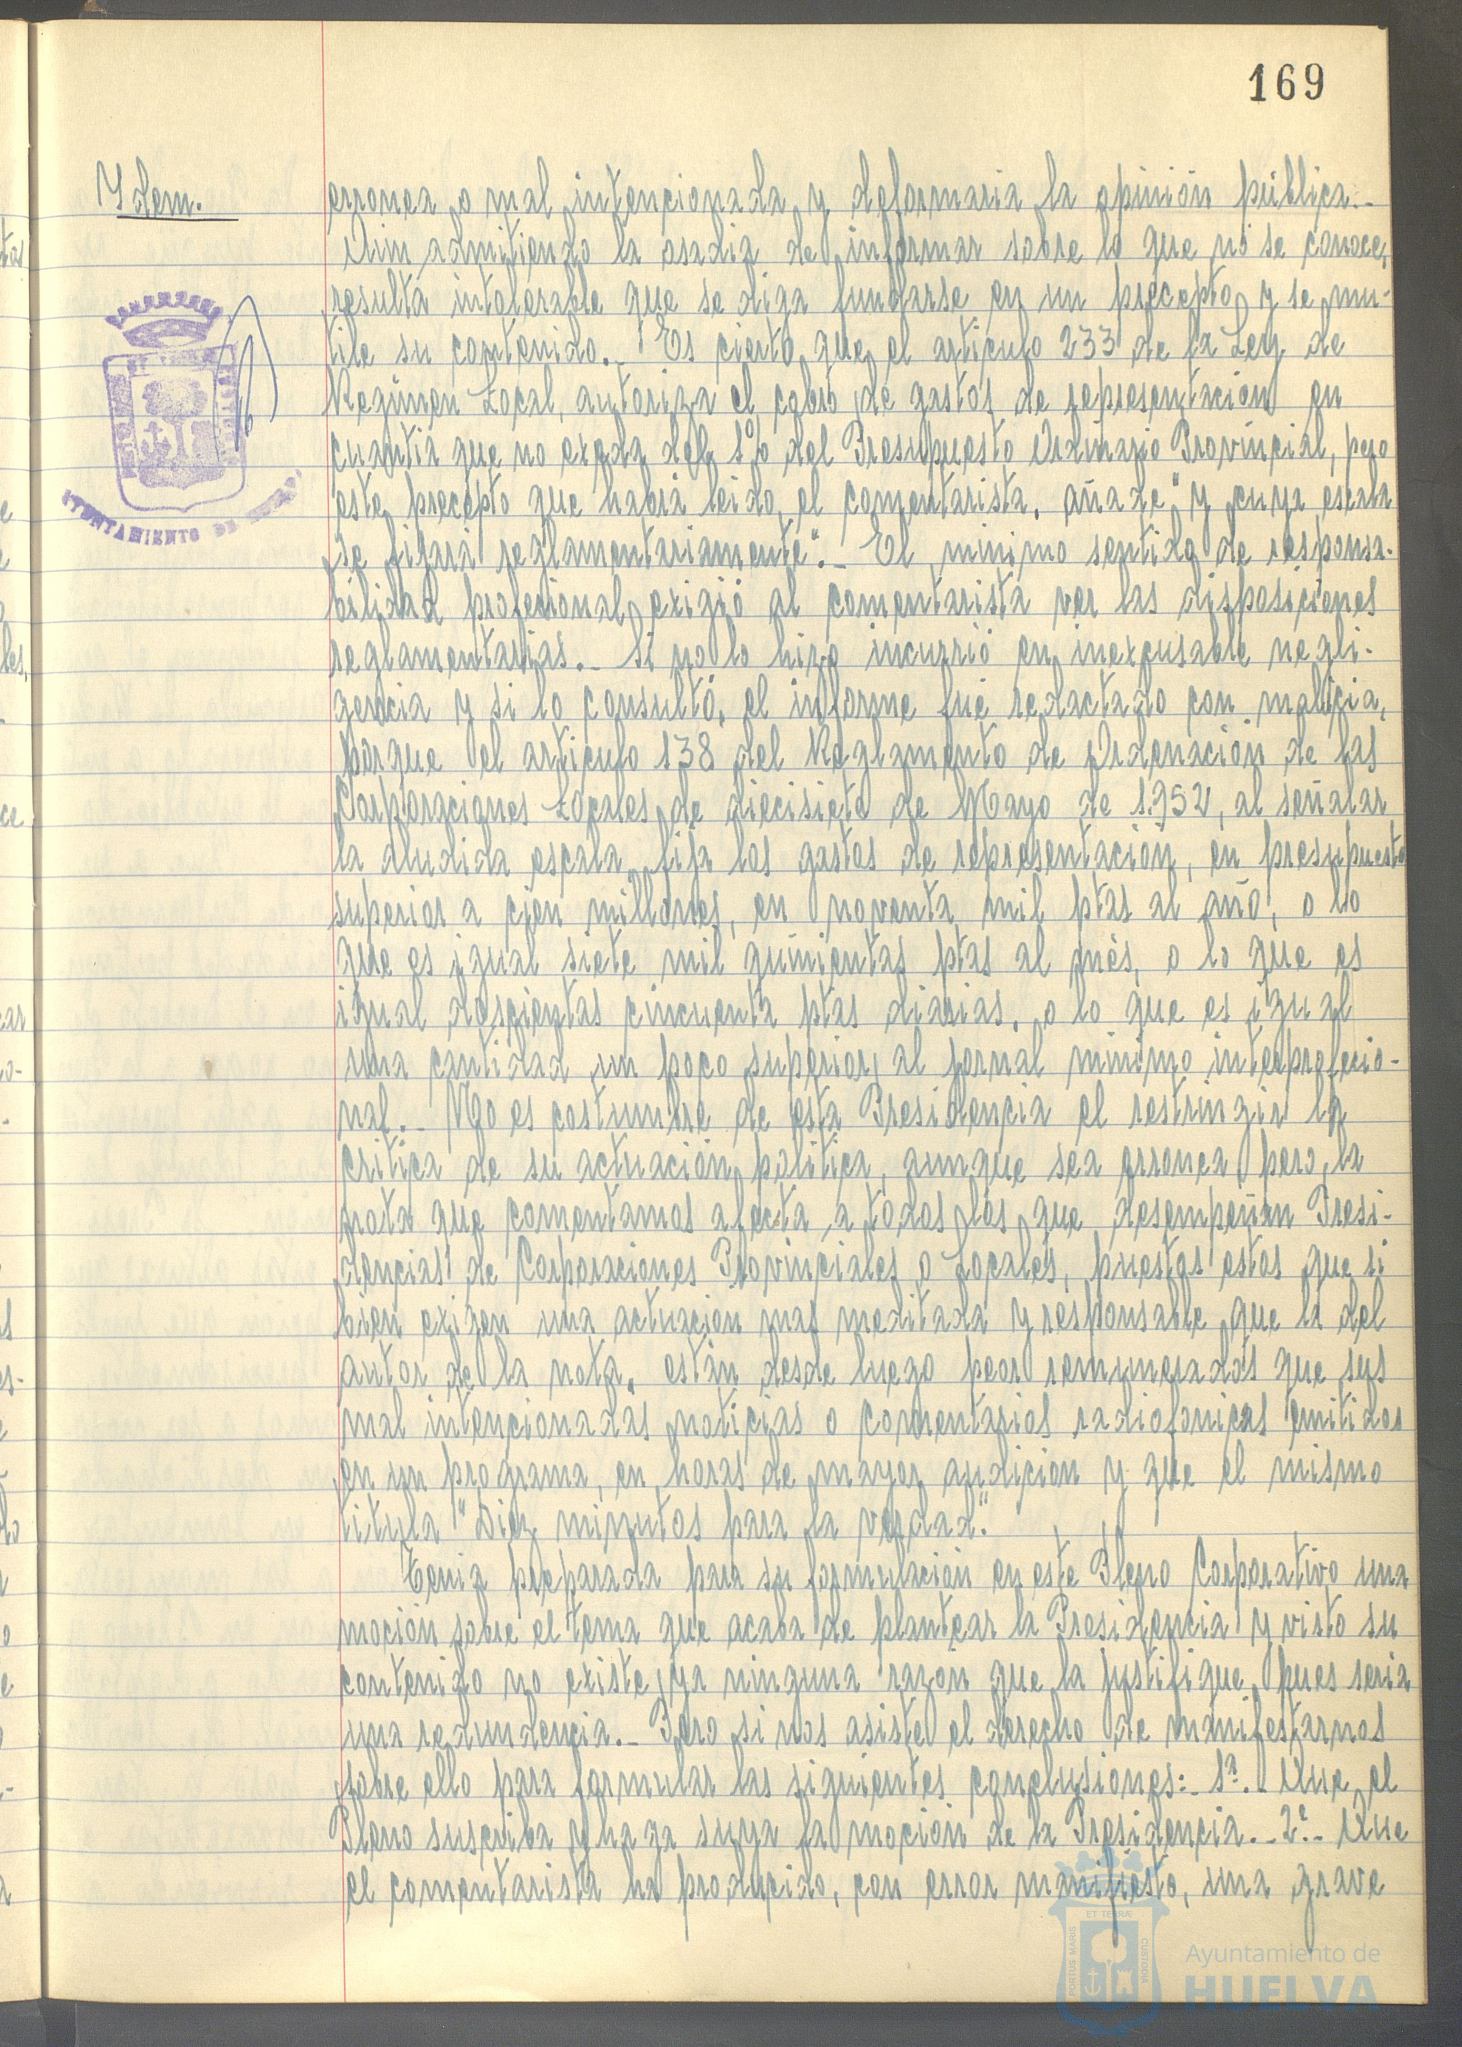 169
Idem.
erronea o mal intencionada y deformaria la opinión pública.-
Aun admitiendo la osadia de informar sobre lo que no se conoce,
resulta intolerable que se diga fundarse en un precepto y se mu-
tile su contenido.- Es cierto que el articulo 233 de la Ley de
Regimen Local, autoriza el cobro de gastos de representación en
cuantia que no exceda del 1% del Presupuesto Ordinario Provincial, pero
este precepto que habrá leido el comentarista, añade "y cuya escala
se fijará reglamentariamente".- El minimo sentido de responsa-
bilidad profesional exigió al comentarista ver las disposiciones
reglamentarias.- Si no lo hizo incurrió en inexcusable negli-
gencia y si lo consultó, el informe fué redactado con malicia,
porque el articulo 138 del Reglamento de Ordenación de las
Corporaciones Locales de diecisiete de Mayo de 1.952, al señalar
la aludida escala, fija los gastos de representación, en presupuesto
superior a cien millones, en noventa mil ptas al año, o lo
que es igual siete mil quinientas ptas al més, o lo que es
igual doscientas cincuenta ptas diarias, o lo que es igual
una cantidad un poco superior al jornal minimo interprofecio-
nal.- No es costumbre de esta Presidencia el restringir la
critica de su actuación politica, aunque sea erronea pero, la
nota que comentamos afecta a todos los que desempeñan Presi-
dencias de Corporaciones Provinciales o Locales, puestos estos que si
bien exigen una actuacion mas meditada y responsable que la del
autor de la nota, están desde luego peor remunerados que sus
mal intencionadas noticias o comentarios radiofonicas emitidos
en un programa, en horas de mayor audicion y que el mismo
titula "Diez minutos para la verdad."
Tenia preparada para su formulación en este Pleno Corporativo una
moción sobre el tema que acaba de plantear la Presidencia y visto su
contenido no existe ya ninguna razón que la justifique, pues seria
una redundencia.- Pero si nos asiste el derecho de manifestarnos
sobre ello para formular las siguientes conclusiones:- 1ª.- Que el
Pleno suscriba y haga suya la moción de la Presidencia.- 2ª.- Que
el comentarista ha producido, con error manifiesto, una grave
AYUNTAMIENTO DE HUELVA
PORTUS MARIS ET TERRÆ CUSTODIA
Ayuntamiento de
HUELVA